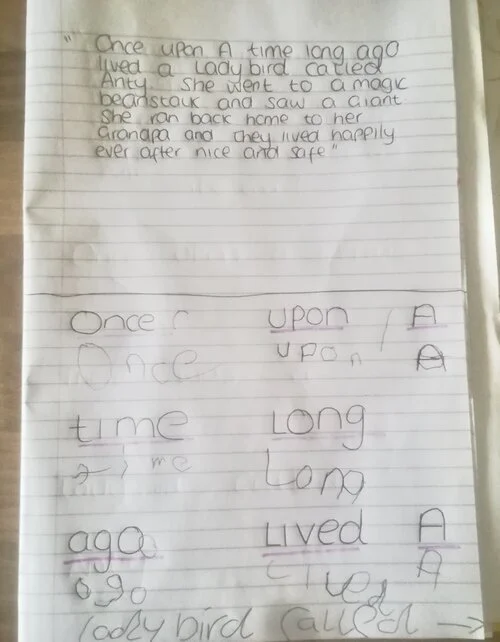 " Once upon A time long ago
lived a Ladybird called
Anty. She went to a magic
beanstalk and saw a Giant
She ran back home to her
Grandpa and they lived happily
ever after nice and safe "
Once upon A
Once upon A
time Long
time Long
ago Lived A
ago Lived A
ladybird called →